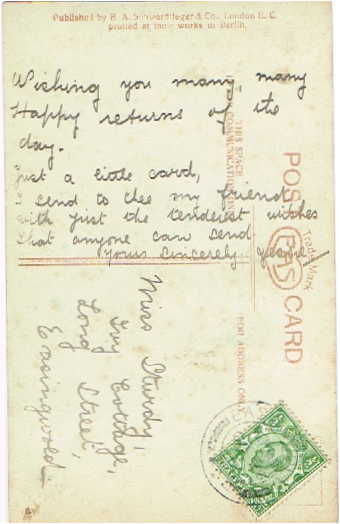 Published by B. A. Schwerdtfeger & Co., London E. C.
printed at their works in Berlin.
Wishing you many, many
Happy returns of the
day.
Just a little card,
I send to thee my friend
with just the tenderest wishes
that anyone can send
Yours Sincerely
THIS SPACE
COMMUNICATION
POST CARD
Trade Mark
FOR ADDRESS ONLY.
Miss Sturdy,
Ivy Cottage,
Long Street,
Easingwold